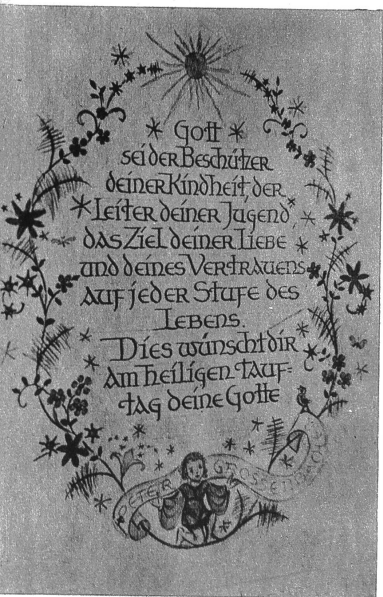 * Gott *
sei der Beschützer
deiner Kindheit, der
Leiter deiner Jugend,
das Ziel deiner Liebe
und deines Vertrauens
auf jeder Stufe des
Lebens.
Dies wünscht dir
am heiligen Tauf=
tag deine Gotte
PETER